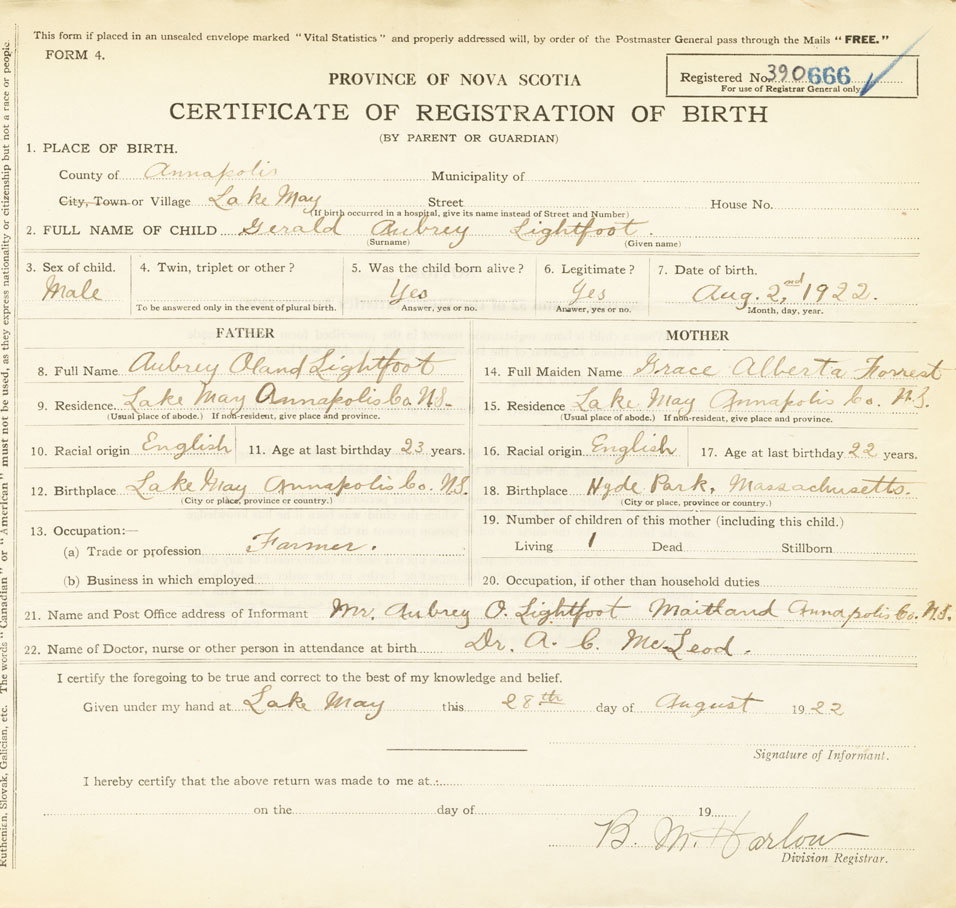 This form if placed in an unsealed envelope marked "Vital Statistics" and properly addressed will, by order of the Postmaster General pass through the Mails "FREE."
FORM 4.
PROVINCE OF NOVA SCOTIA
Registered No. 390666
For use of Registrar General only.
CERTIFICATE OF REGISTRATION OF BIRTH
(BY PARENT OR GUARDIAN)
1. PLACE OF BIRTH.
County of Annapolis Municipality of
City, Town or Village Lake May Street House No.
(If birth occurred in a hospital, give its name instead of Street and Number)
2. FULL NAME OF CHILD Gerald Aubrey Lightfoot.
(Surname) (Given name)
3. Sex of child. 4. Twin, triplet or other? 5. Was the child born alive? 6. Legitimate? 7. Date of birth.
Male Yes Yes Aug. 2nd, 1922.
To be answered only in the event of plural birth. Answer, yes or no. Answer, yes or no. Month, day, year.
FATHER MOTHER
8. Full Name Aubrey Oland Lightfoot 14. Full Maiden Name Grace Alberta Forrest
9. Residence. Lake May Annapolis Co. N.S. 15. Residence Lake May Annapolis Co. N.S.
(Usual place of abode.) If non-resident, give place and province. (Usual place of abode.) If non-resident, give place and province.
10. Racial origin English 11. Age at last birthday 23 years. 16. Racial origin English 17. Age at last birthday 22 years.
12. Birthplace Lake May Annapolis Co. N.S. 18. Birthplace Hyde Park, Massachusetts.
(City or place, province or country.) (City or place, province or country.)
13. Occupation:— 19. Number of children of this mother (including this child.)
(a) Trade or profession Farmer. Living 1 Dead Stillborn
(b) Business in which employed 20. Occupation, if other than household duties
21. Name and Post Office address of Informant Mr. Aubrey O. Lightfoot Maitland Annapolis Co. N.S.
22. Name of Doctor, nurse or other person in attendance at birth Dr. A. C. McLeod.
I certify the foregoing to be true and correct to the best of my knowledge and belief.
Given under my hand at Lake May this 28th day of August 1922
Signature of Informant.
I hereby certify that the above return was made to me at
on the day of 19
B. M. Harlow
Division Registrar.
Ruthenian, Slovak, Galician, etc. The words "Canadian" or "American" must not be used, as they express nationality or citizenship but not a race or people.